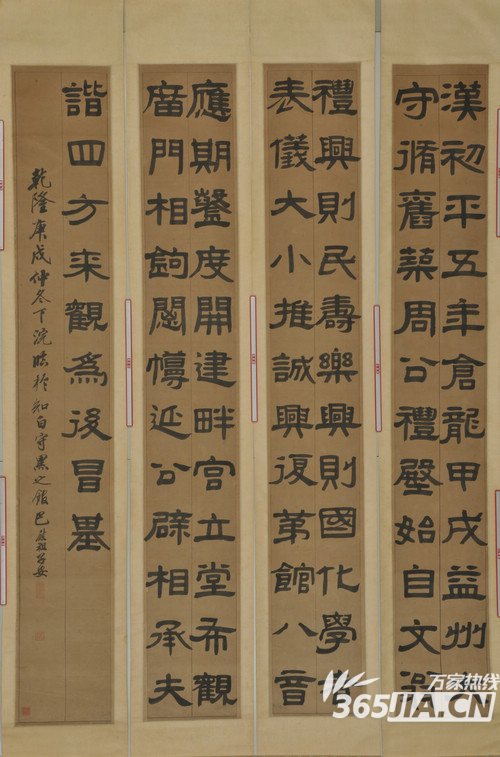 漢初平五年倉龍甲戌益州
守脩舊築周公禮壂始自文
禮興則民壽樂興則國化學
表儀大小推誠興復第館八音
應期鏧度開建畔宮立堂布觀
庿門相鉤閟延公辟相承夫
諧四方来觀為後冒基
乾隆庚戌仲冬下浣臨於知白守黑之館巴慰祖
万家热线
365JIA.CN